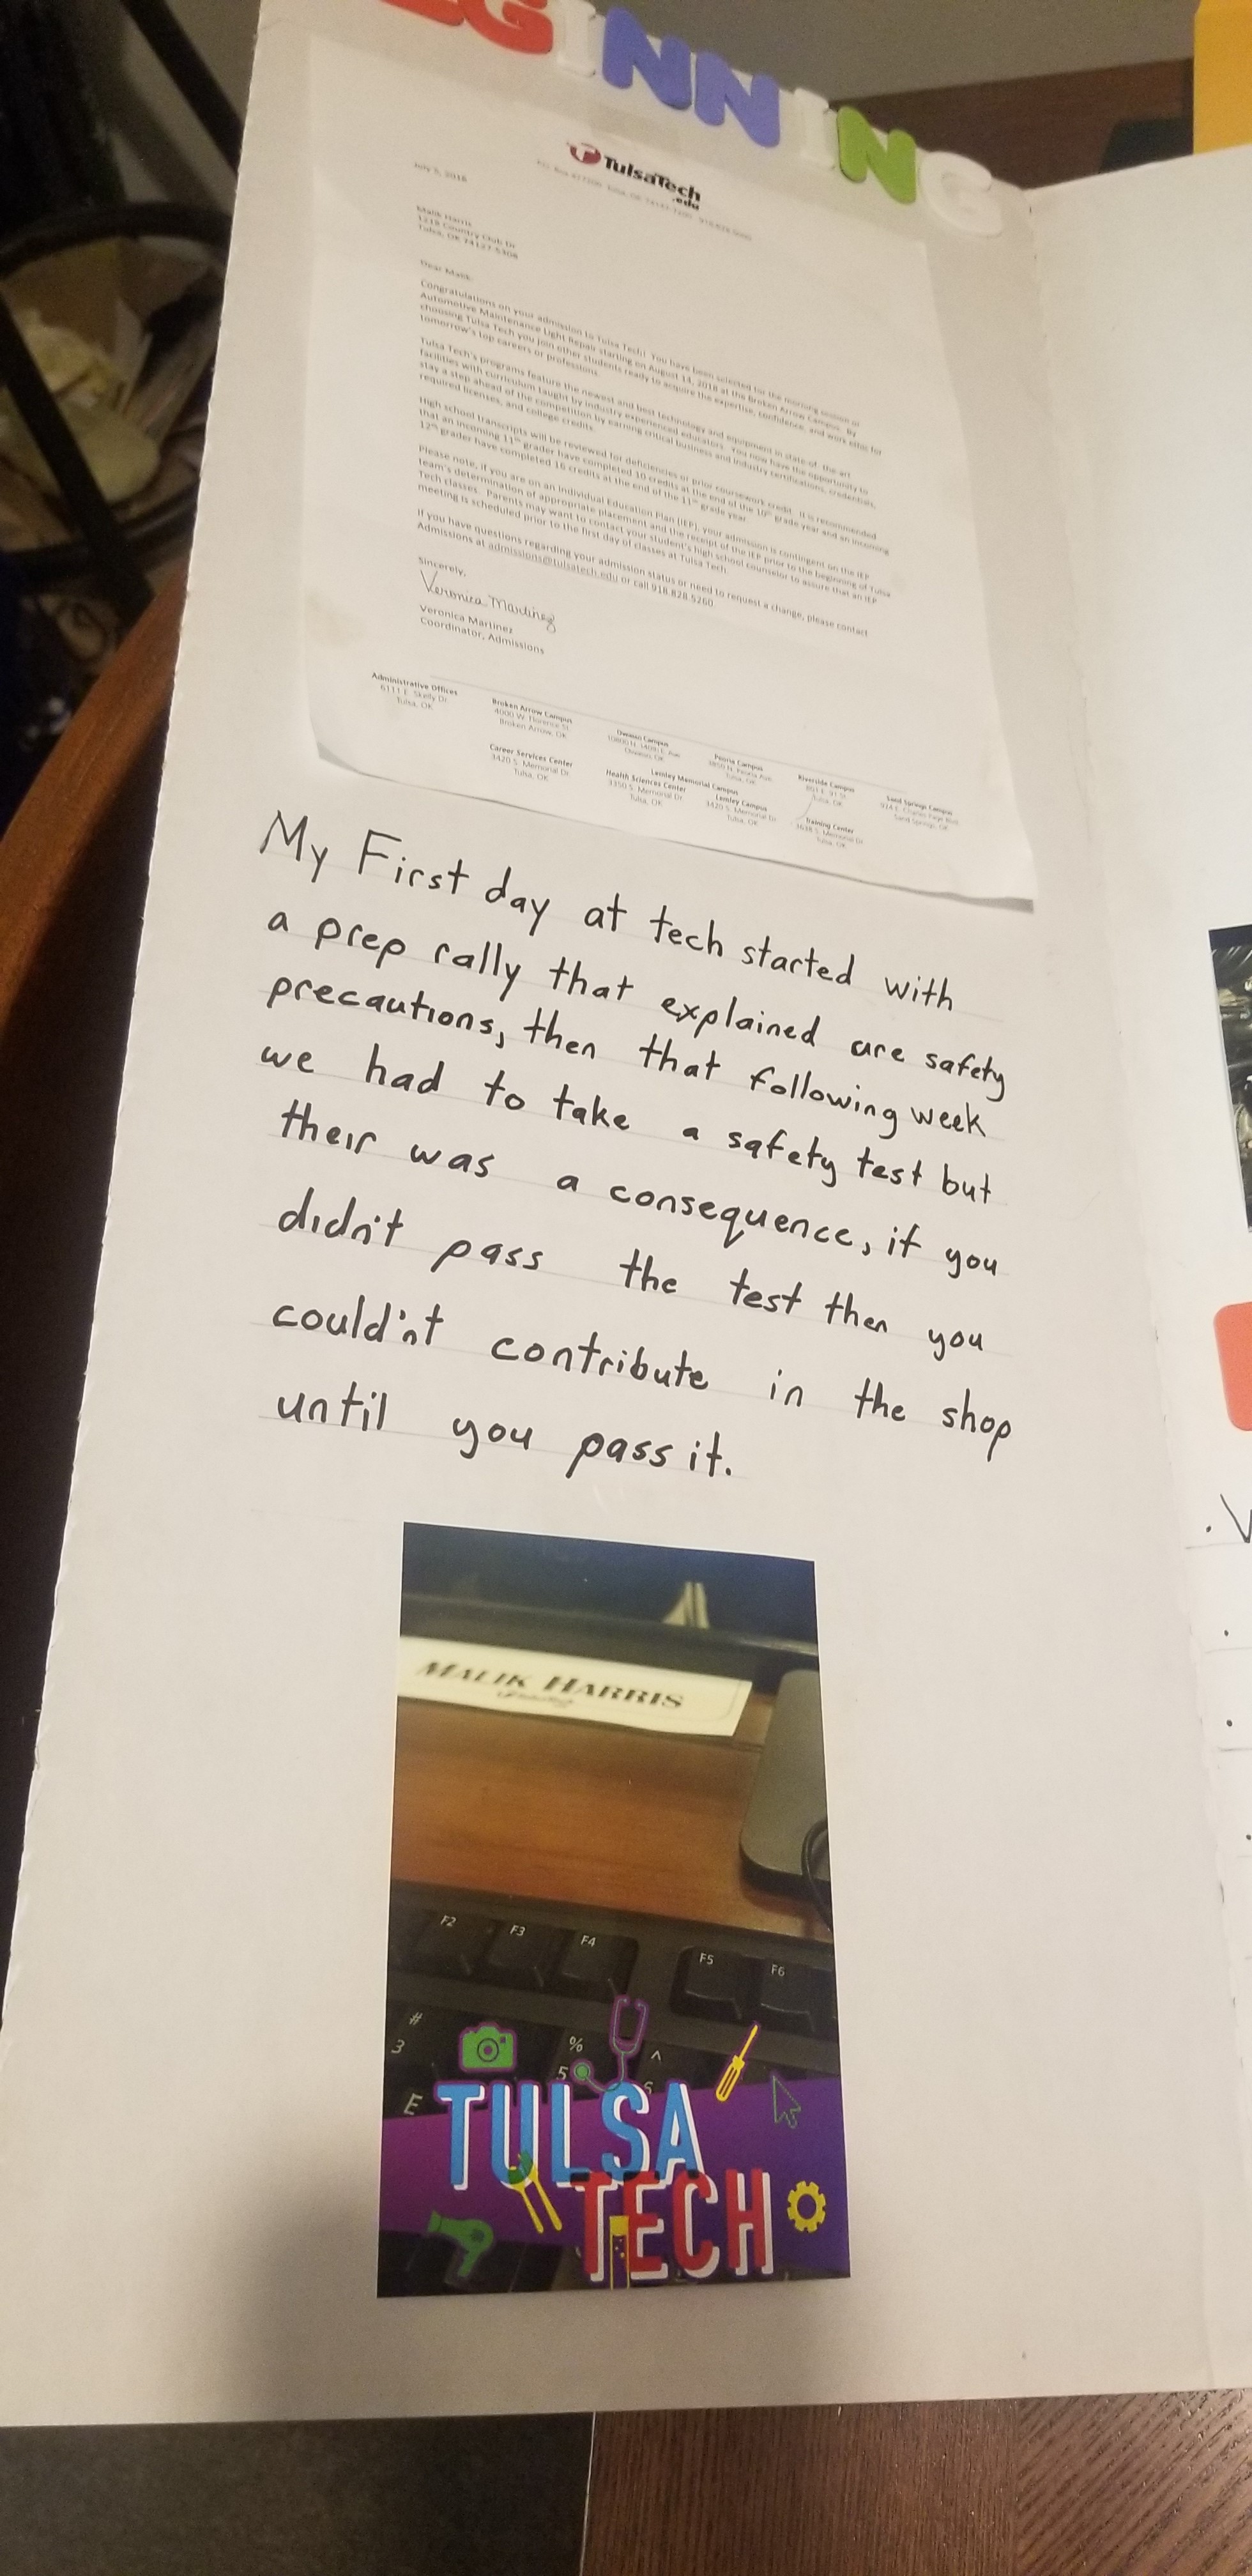 GINNING
TulsaTech
.edu
July 5, 2018
Malik Harris
1218 Country Club Dr
Tulsa, OK 74127-5308
Dear Malik:
Congratulations on your admission to Tulsa Tech! You have been selected for the morning session of
Automotive Maintenance Light Repair starting on August 14, 2018 at the Broken Arrow Campus. By
choosing Tulsa Tech you join other students ready to acquire the expertise, confidence, and work ethic for
tomorrow's top careers or professions.
Tulsa Tech's programs feature the newest and best technology and equipment in state-of-the-art
facilities with curriculum taught by industry experienced educators. You now have the opportunity to
stay a step ahead of the competition by earning critical business and industry certifications, credentials,
required licenses, and college credits.
High school transcripts will be reviewed for deficiencies or prior coursework credit. It is recommended
that an incoming 11th grader have completed 10 credits at the end of the 10th grade year and an incoming
12th grader have completed 16 credits at the end of the 11th grade year.
Please note, if you are on an Individual Education Plan (IEP), your admission is contingent on the IEP
team's determination of appropriate placement and the receipt of the IEP prior to the beginning of Tulsa
Tech classes. Parents may want to contact your student's high school counselor to assure that an IEP
meeting is scheduled prior to the first day of classes at Tulsa Tech.
If you have questions regarding your admission status or need to request a change, please contact
Admissions at admissions@tulsatech.edu or call 918.828.5260.
Sincerely,
Veronica Martinez
Veronica Martinez
Coordinator, Admissions
Administrative Offices
6111 E. Skelly Dr.
Tulsa, OK
Broken Arrow Campus
4000 W. Florence St.
Broken Arrow, OK
Owasso Campus
Owasso, OK
Peoria Campus
3850 N. Peoria Ave.
Tulsa, OK
Riverside Campus
801 E. 91 St.
Tulsa, OK
Sand Springs Campus
Sand Springs, OK
Career Services Center
3420 S. Memorial Dr.
Tulsa, OK
Lemley Memorial Campus
Health Sciences Center
3350 S. Memorial Dr.
Tulsa, OK
Lemley Campus
3420 S. Memorial Dr.
Tulsa, OK
Training Center
3638 S. Memorial Dr.
Tulsa, OK
My First day at tech started with
a prep rally that explained are safety
precautions, then that following week
we had to take a safety test but
their was a consequence, if you
didn't pass the test then you
could'nt contribute in the shop
until you pass it.
MALIK HARRIS
F2 F3 F4 F5 F6
# % ^
3 5 6
E
TULSA
TECH